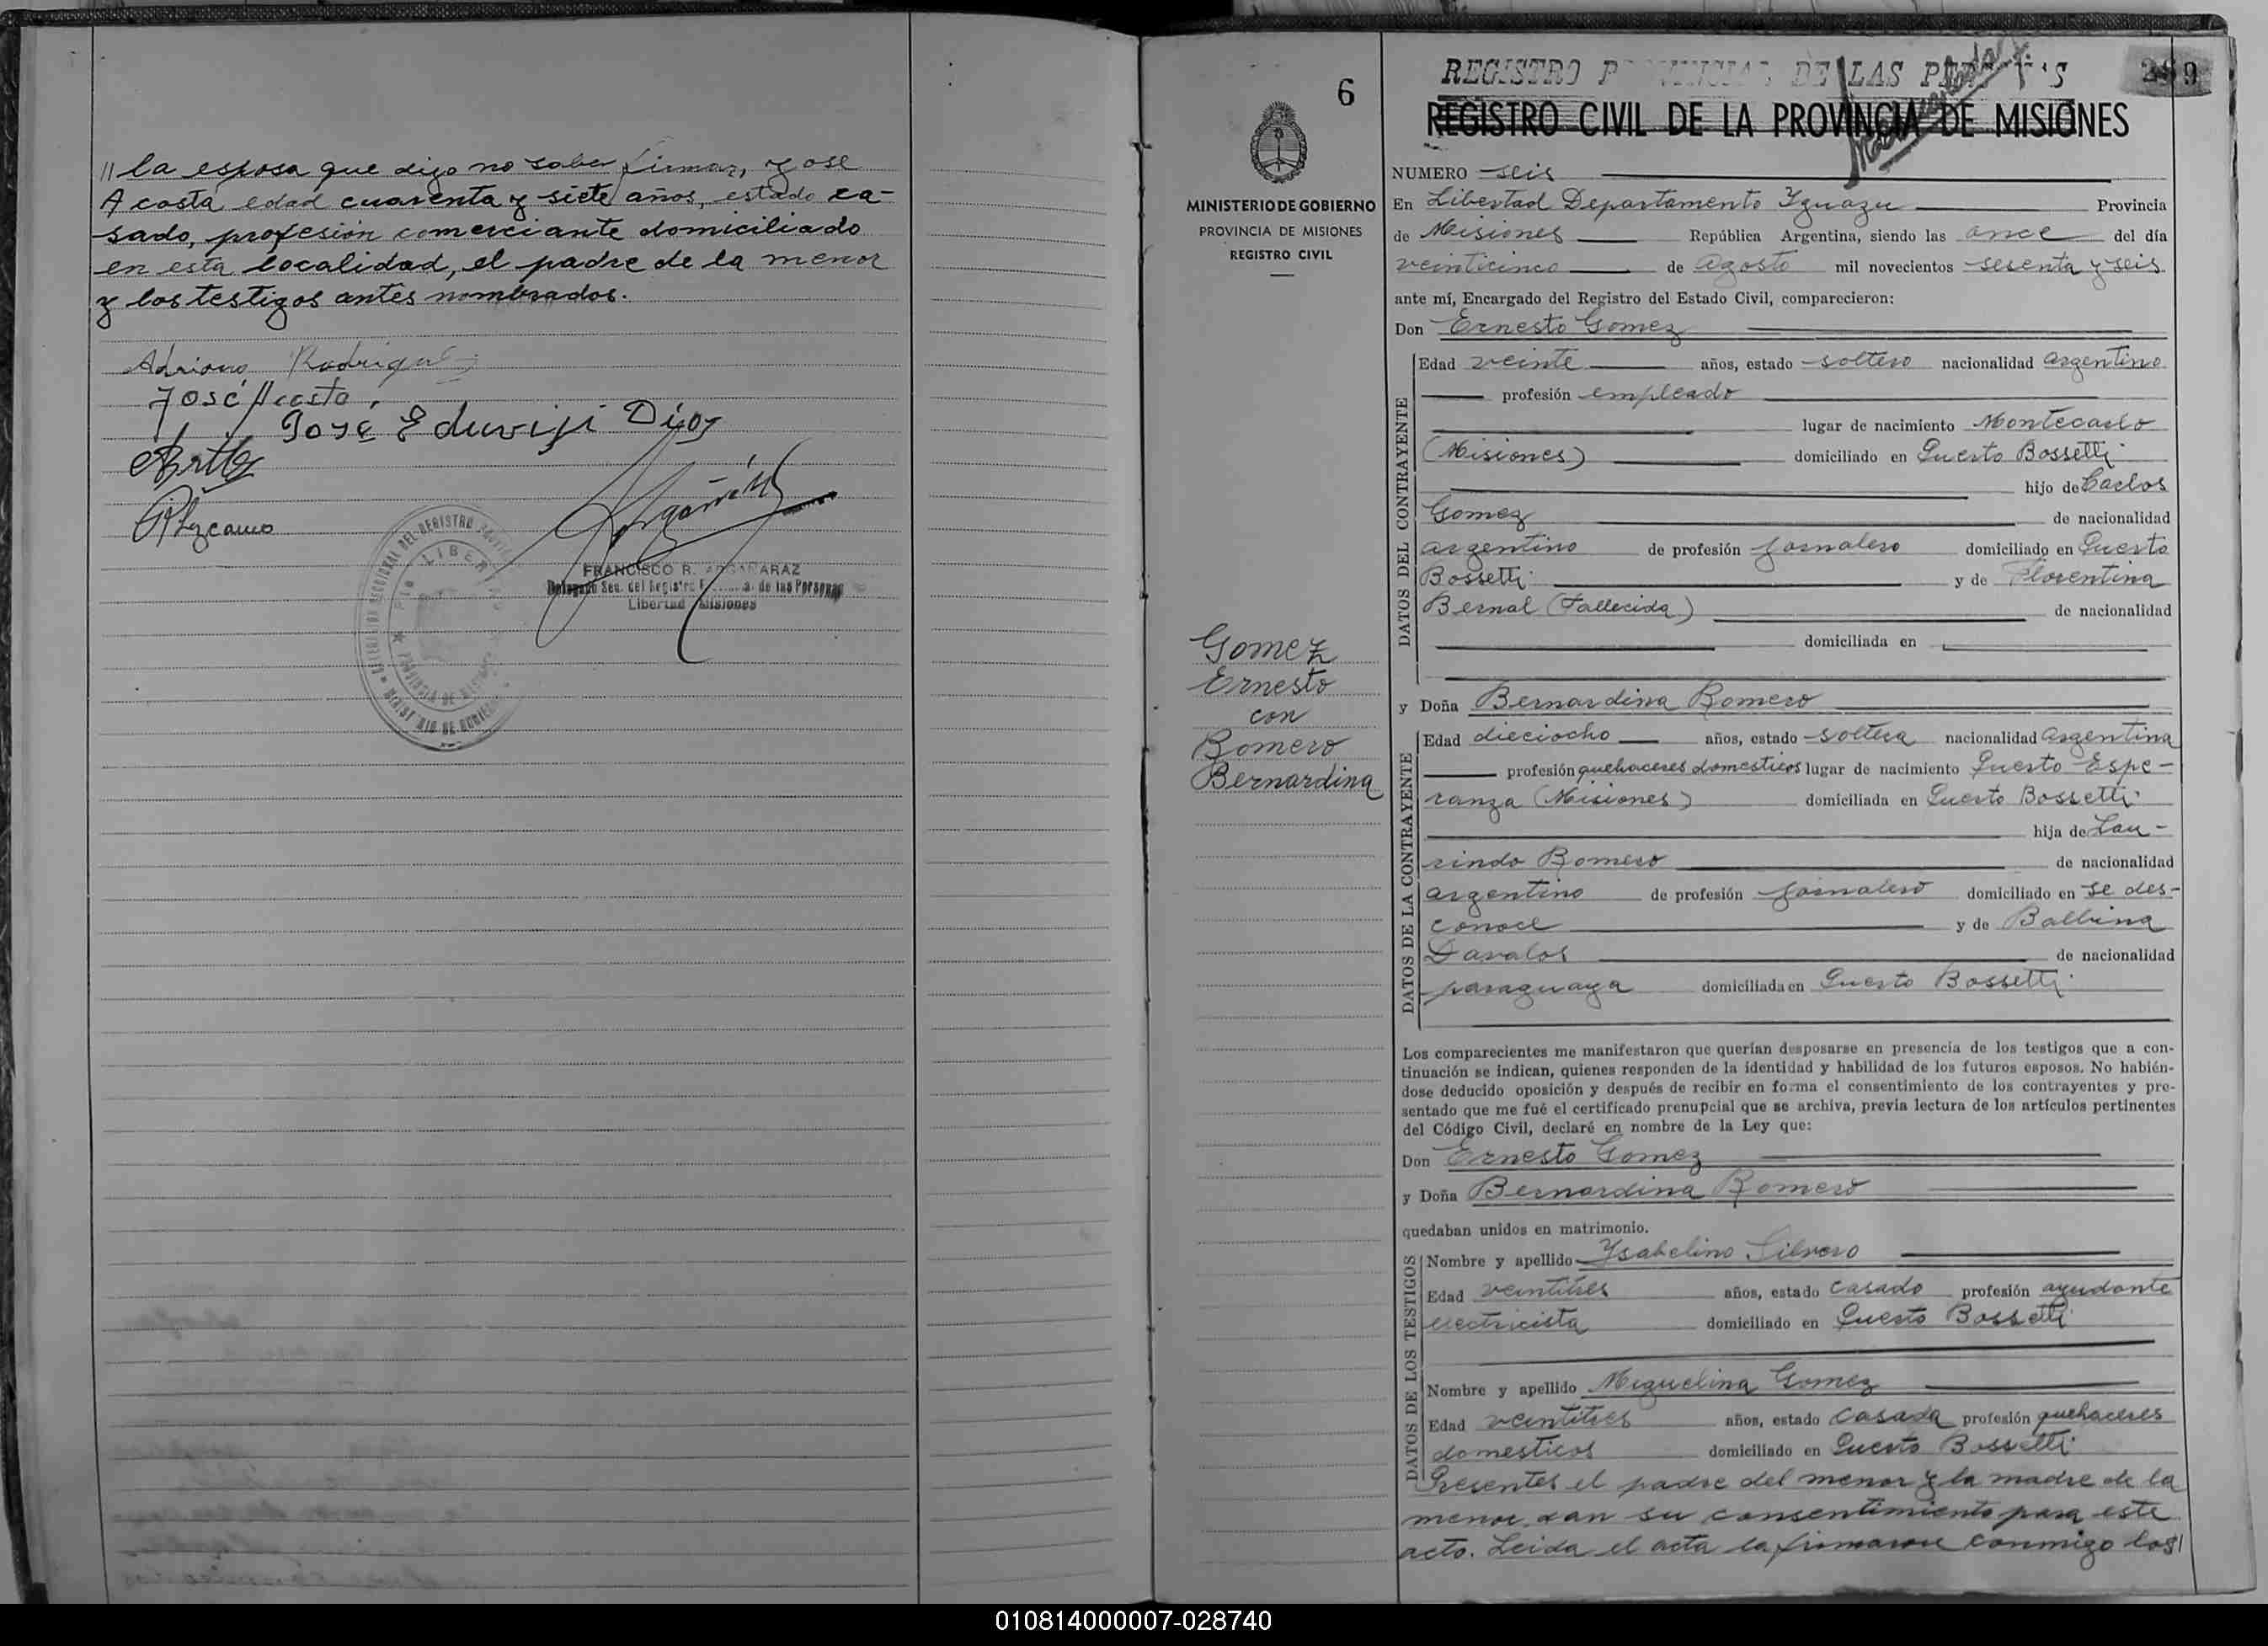 // la esposa que digo no saber firmar, y ose
Acosta edad cuarenta y siete años, estado ca-
sado, profesión comerciante domiciliado
en esta localidad, el padre de la menor
y los testigos antes nombrados.
José Acosta
José Eduviji Dios
FRANCISCO R.
Delegado Sec. del Registro de las Personas
Libertad Misiones
6
MINISTERIO DE GOBIERNO
PROVINCIA DE MISIONES
REGISTRO CIVIL
Gomez
Ernesto
con
Romero
Bernardina
REGISTRO PROVINCIAL DE LAS PERSONAS
REGISTRO CIVIL DE LA PROVINCIA DE MISIONES
NUMERO seis
En Libertad Departamento Yguazu Provincia
de Misiones República Argentina, siendo las once del día
veinticinco de Agosto mil novecientos sesenta y seis
ante mí, Encargado del Registro del Estado Civil, comparecieron:
Don Ernesto Gomez
DATOS DEL CONTRAYENTE
Edad veinte años, estado soltero nacionalidad argentino
profesión empleado
lugar de nacimiento Montecarlo
(Misiones) domiciliado en Puerto Bossetti
hijo de Carlos
Gomez de nacionalidad
argentino de profesión jornalero domiciliado en Puerto
Bossetti y de Florentina
Bernal (Fallecida) de nacionalidad
domiciliada en
y Doña Bernardina Romero
DATOS DE LA CONTRAYENTE
Edad dieciocho años, estado soltera nacionalidad argentina
profesión quehaceres domesticos lugar de nacimiento Puerto Espe-
ranza (Misiones) domiciliada en Puerto Bossetti
hija de Lau-
rindo Romero de nacionalidad
argentino de profesión jornalero domiciliado en se des-
conoce y de Balbina
Davalos de nacionalidad
paraguaya domiciliada en Puerto Bossetti
Los comparecientes me manifestaron que querían desposarse en presencia de los testigos que a con-
tinuación se indican, quienes responden de la identidad y habilidad de los futuros esposos. No habién-
dose deducido oposición y después de recibir en forma el consentimiento de los contrayentes y pre-
sentado que me fué el certificado prenupcial que se archiva, previa lectura de los artículos pertinentes
del Código Civil, declaré en nombre de la Ley que:
Don Ernesto Gomez
y Doña Bernardina Romero
quedaban unidos en matrimonio.
DATOS DE LOS TESTIGOS
Nombre y apellido Ysabelino Silvero
Edad veintitres años, estado casado profesión ayudante
electricista domiciliado en Puerto Bossetti
Nombre y apellido Miguelina Gomez
Edad veintitres años, estado casada profesión quehaceres
domesticos domiciliado en Puerto Bossetti
Presentes el padre del menor y la madre de la
menor, dan su consentimiento para este
acto. Leida el acta la firmaron conmigo los//
010814000007-028740